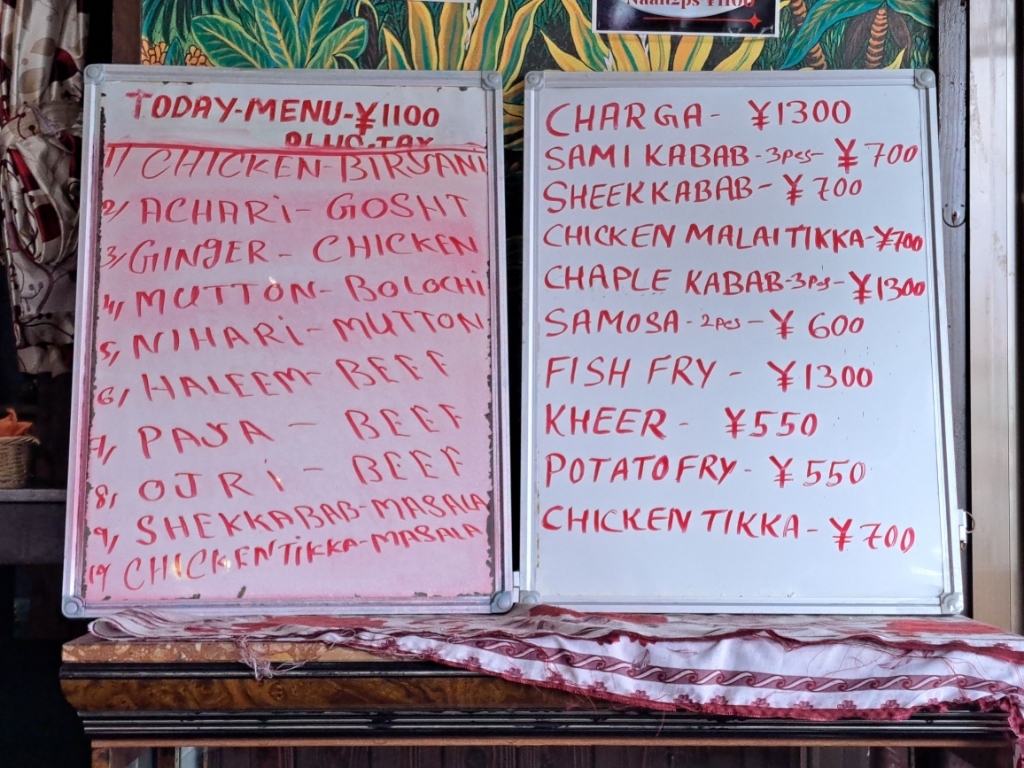 Naan2ps ¥1100
TODAY-MENU-¥1100
PLUS-TAX
1/ CHICKEN-BIRYANI
2/ ACHARi-GOSHT
3/ GINGER-CHICKEN
4/ MUTTON-BOLOCHi
5/ NIHARi-MUTTON
6/ HALEEM-BEEF
7/ PAYA-BEEF
8/ OJRi-BEEF
9/ SHEKKABAB-MASALA
10/ CHICKENTiKKA-MASALA
CHARGA- ¥1300
SAMI KABAB-3pcs-¥700
SHEEKKABAB-¥700
CHICKEN MALAITIKKA-¥700
CHAPLE KABAB-3Ps-¥1300
SAMOSA-2pcs-¥600
FISH FRY-¥1300
KHEER-¥550
POTATOFRY-¥550
CHICKEN TIKKA-¥700